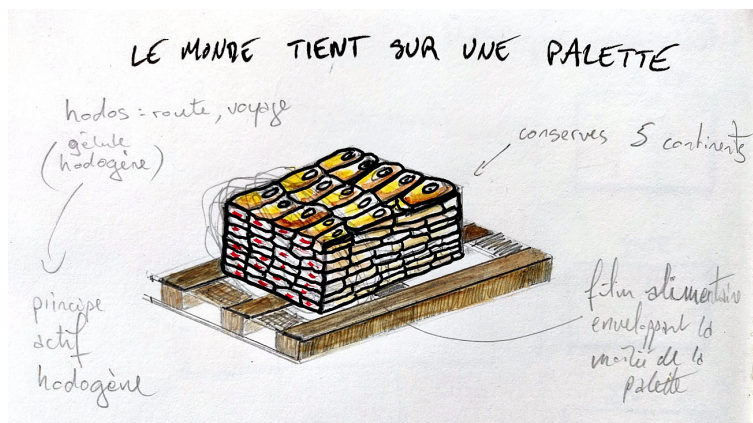 LE MONDE TIENT SUR UNE PALETTE
hodos = route, voyage
(gélule
hodogène)
principe
actif
hodogène
conserves 5 continents
film alimentaire
enveloppant la
moitié de la
palette